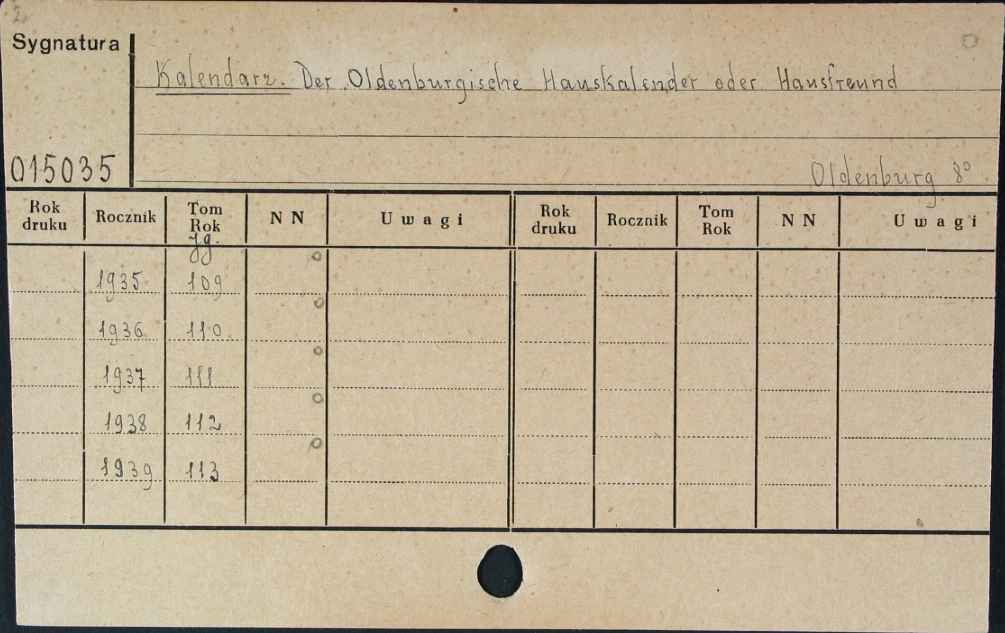 2.
Sygnatura
Kalendarz. Der Oldenburgische Hauskalender oder Hausfreund
015035
Oldenburg 8°
Rok druku Rocznik Tom Rok NN Uwagi Rok druku Rocznik Tom Rok NN Uwagi
Jg.
1935 109
1936 110
1937 111
1938 112
1939 113